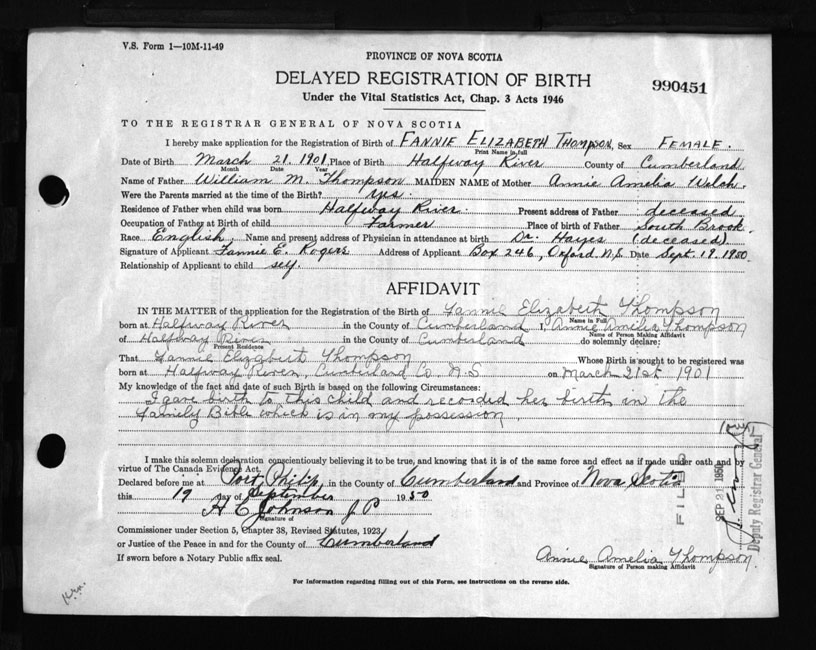 V.S. Form 1—10M-11-49
PROVINCE OF NOVA SCOTIA
DELAYED REGISTRATION OF BIRTH
990451
Under the Vital Statistics Act, Chap. 3 Acts 1946
TO THE REGISTRAR GENERAL OF NOVA SCOTIA
I hereby make application for the Registration of Birth of FANNIE ELIZABETH THOMPSON, Sex FEMALE.
Print Name in full
Date of Birth March 21. 1901, Place of Birth Halfway River County of Cumberland
Month Date Year
Name of Father William M. Thompson MAIDEN NAME of Mother Annie Amelia Welch.
Were the Parents married at the time of the Birth? yes.
Residence of Father when child was born Halfway River. Present address of Father deceased.
Occupation of Father at Birth of child Farmer Place of birth of Father South Brook
Race English Name and present address of Physician in attendance at birth Dr. Hayes (deceased).
Signature of Applicant Fannie E. Rogers Address of Applicant Box 246, Oxford. N.S Date Sept. 19. 1950
Relationship of Applicant to child self.
AFFIDAVIT
IN THE MATTER of the application for the Registration of the Birth of Fannie Elizabeth Thompson
Name in Full
born at Halfway River in the County of Cumberland I, Annie Amelia Thompson
Name of Person Making Affidavit
of Halfway River in the County of Cumberland do solemnly declare;
Present Residence
That Fannie Elizabeth Thompson Whose Birth is sought to be registered was
born at Halfway River, Cumberland Co. N.S on March 21st 1901
My knowledge of the fact and date of such Birth is based on the following Circumstances:
I gave birth to this child and recorded her birth in the
family Bible which is in my possession
I make this solemn declaration conscientiously believing it to be true, and knowing that it is of the same force and effect as if made under oath and by
virtue of The Canada Evidence Act.
Declared before me at Port Philip, in the County of Cumberland and Province of Nova Scotia
this 19 day of September 1950
H E Johnson J P
Signature of
Commissioner under Section 5, Chapter 38, Revised Statutes, 1923
or Justice of the Peace in and for the County of Cumberland
If sworn before a Notary Public affix seal.
Annie Amelia Thompson
Signature of Person making Affidavit
For Information regarding filling out of this Form, see instructions on the reverse side.
FILED
SEP 21 1950
Deputy Registrar General